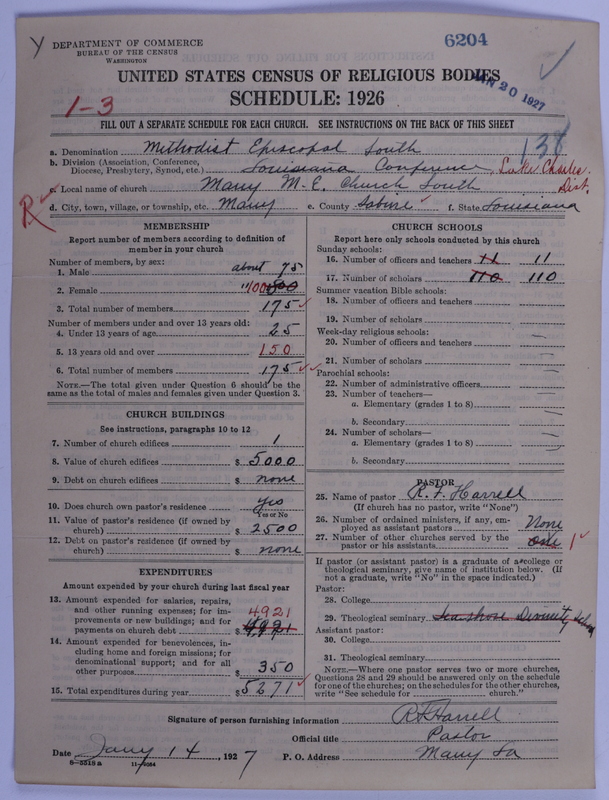 DEPARTMENT OF COMMERCE
BUREAU OF THE CENSUS
WASHINGTON
6204
UNITED STATES CENSUS OF RELIGIOUS BODIES
JAN 20 1927
SCHEDULE: 1926
1-3
FILL OUT A SEPARATE SCHEDULE FOR EACH CHURCH. SEE INSTRUCTIONS ON THE BACK OF THIS SHEET
138
a. Denomination Methodist Episcopal South
b. Division (Association, Conference, Diocese, Presbytery, Synod, etc.) Louisiana Conference, Lake Charles Dist.
c. Local name of church Many M.E. Church South
d. City, town, village, or township, etc. Many e. County Sabine f. State Louisiana
MEMBERSHIP
Report number of members according to definition of
member in your church
Number of members, by sex:
1. Male about 75
2. Female " 100
3. Total number of members 175
Number of members under and over 13 years old:
4. Under 13 years of age 25
5. 13 years old and over 150
6. Total number of members 175
NOTE.—The total given under Question 6 should be the
same as the total of males and females given under Question 3.
CHURCH BUILDINGS
See instructions, paragraphs 10 to 12
7. Number of church edifices 1
8. Value of church edifices $ 5000
9. Debt on church edifices $ none
10. Does church own pastor's residence yes
Yes or No
11. Value of pastor's residence (if owned by
church) $ 2500
12. Debt on pastor's residence (if owned by
church) $ none
EXPENDITURES
Amount expended by your church during last fiscal year
13. Amount expended for salaries, repairs,
and other running expenses; for im-
provements or new buildings; and for
payments on church debt $ 4921
4921
14. Amount expended for benevolences, in-
cluding home and foreign missions; for
denominational support; and for all
other purposes $ 350
15. Total expenditures during year $ 5271
CHURCH SCHOOLS
Report here only schools conducted by this church
Sunday schools:
16. Number of officers and teachers 11 11
17. Number of scholars 110 110
Summer vacation Bible schools:
18. Number of officers and teachers
19. Number of scholars
Week-day religious schools:
20. Number of officers and teachers
21. Number of scholars
Parochial schools:
22. Number of administrative officers
23. Number of teachers—
a. Elementary (grades 1 to 8)
b. Secondary
24. Number of scholars—
a. Elementary (grades 1 to 8)
b. Secondary
PASTOR
25. Name of pastor R. F. Harrell
(If church has no pastor, write "None")
26. Number of ordained ministers, if any, em-
ployed as assistant pastors None
27. Number of other churches served by the
pastor or his assistants one 1
If pastor (or assistant pastor) is a graduate of a college or
theological seminary, give name of institution below. (If
not a graduate, write "No" in the space indicated.)
Pastor:
28. College
29. Theological seminary Seashore Divinity School
Assistant pastor:
30. College
31. Theological seminary
NOTE.—Where one pastor serves two or more churches,
Questions 28 and 29 should be answered only on the schedule
for one of the churches; on the schedules for the other churches,
write "See schedule for church."
Signature of person furnishing information R F Harrell
Official title Pastor
Date Jany 14, 1927 P. O. Address Many La
8—5518a 11—9064